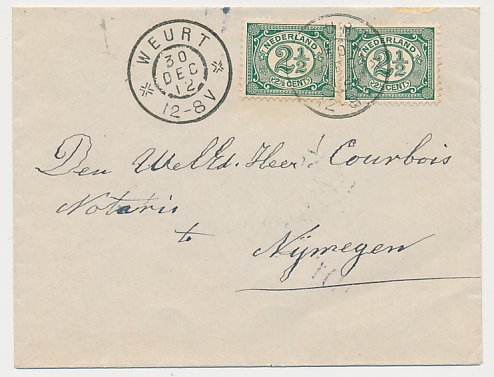 WEURT
30
DEC
12
12-8V
NEDERLAND
2½
2½ CENT
NEDERLAND
2½
2½ CENT
Den WelEd. Heer Courbois
Notaris
te
Nijmegen